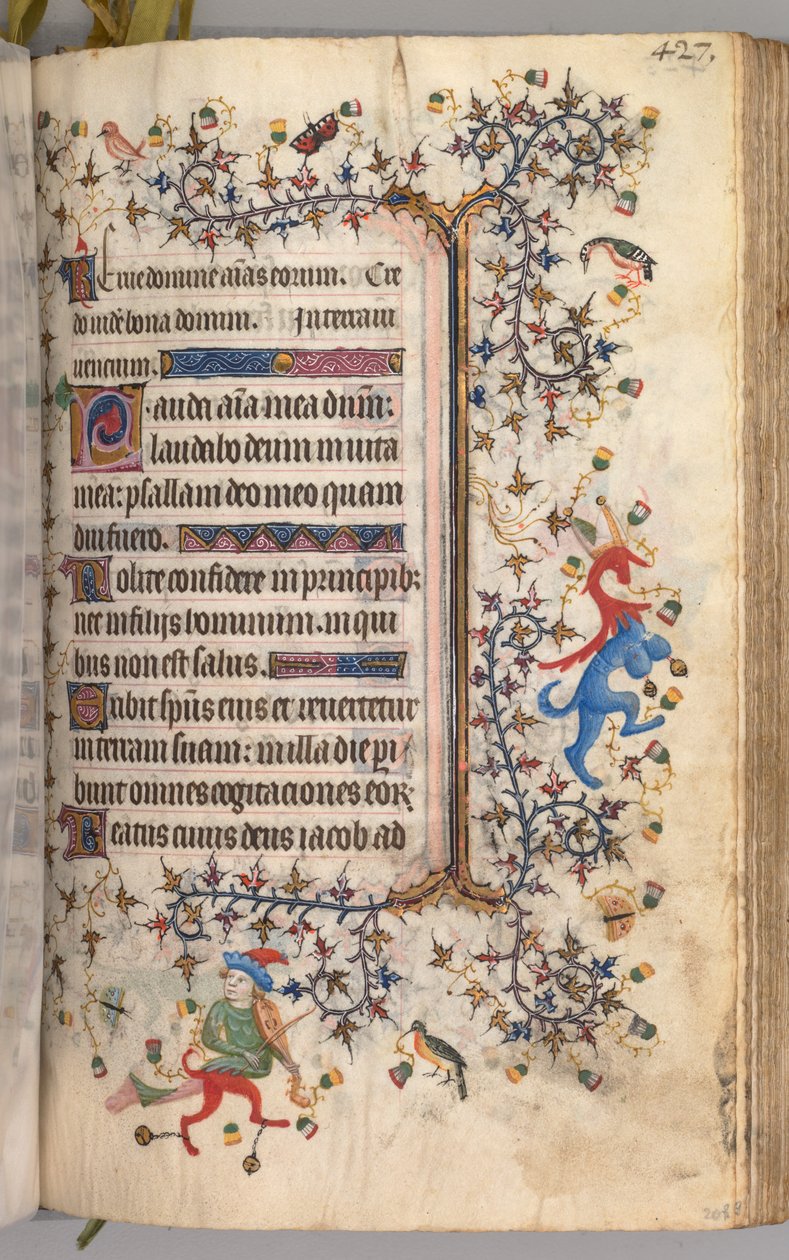 427,
Reine domine aīas eorum. Cre
do uidē bona domini. In terram
uiuencium.
Lauda aīa mea dnm̄:
laudabo deum in uita
mea: psallam deo meo quam
diu fuero.
Nolite confidere in principib;
nec in filijs hominum. in qui
bus non est salus.
Exibit spūs eius et reuertetur
in terram suam: in illa die peri
bunt omnes cogitaciones eoꝝ
Beatus cuius deus iacob ad
208